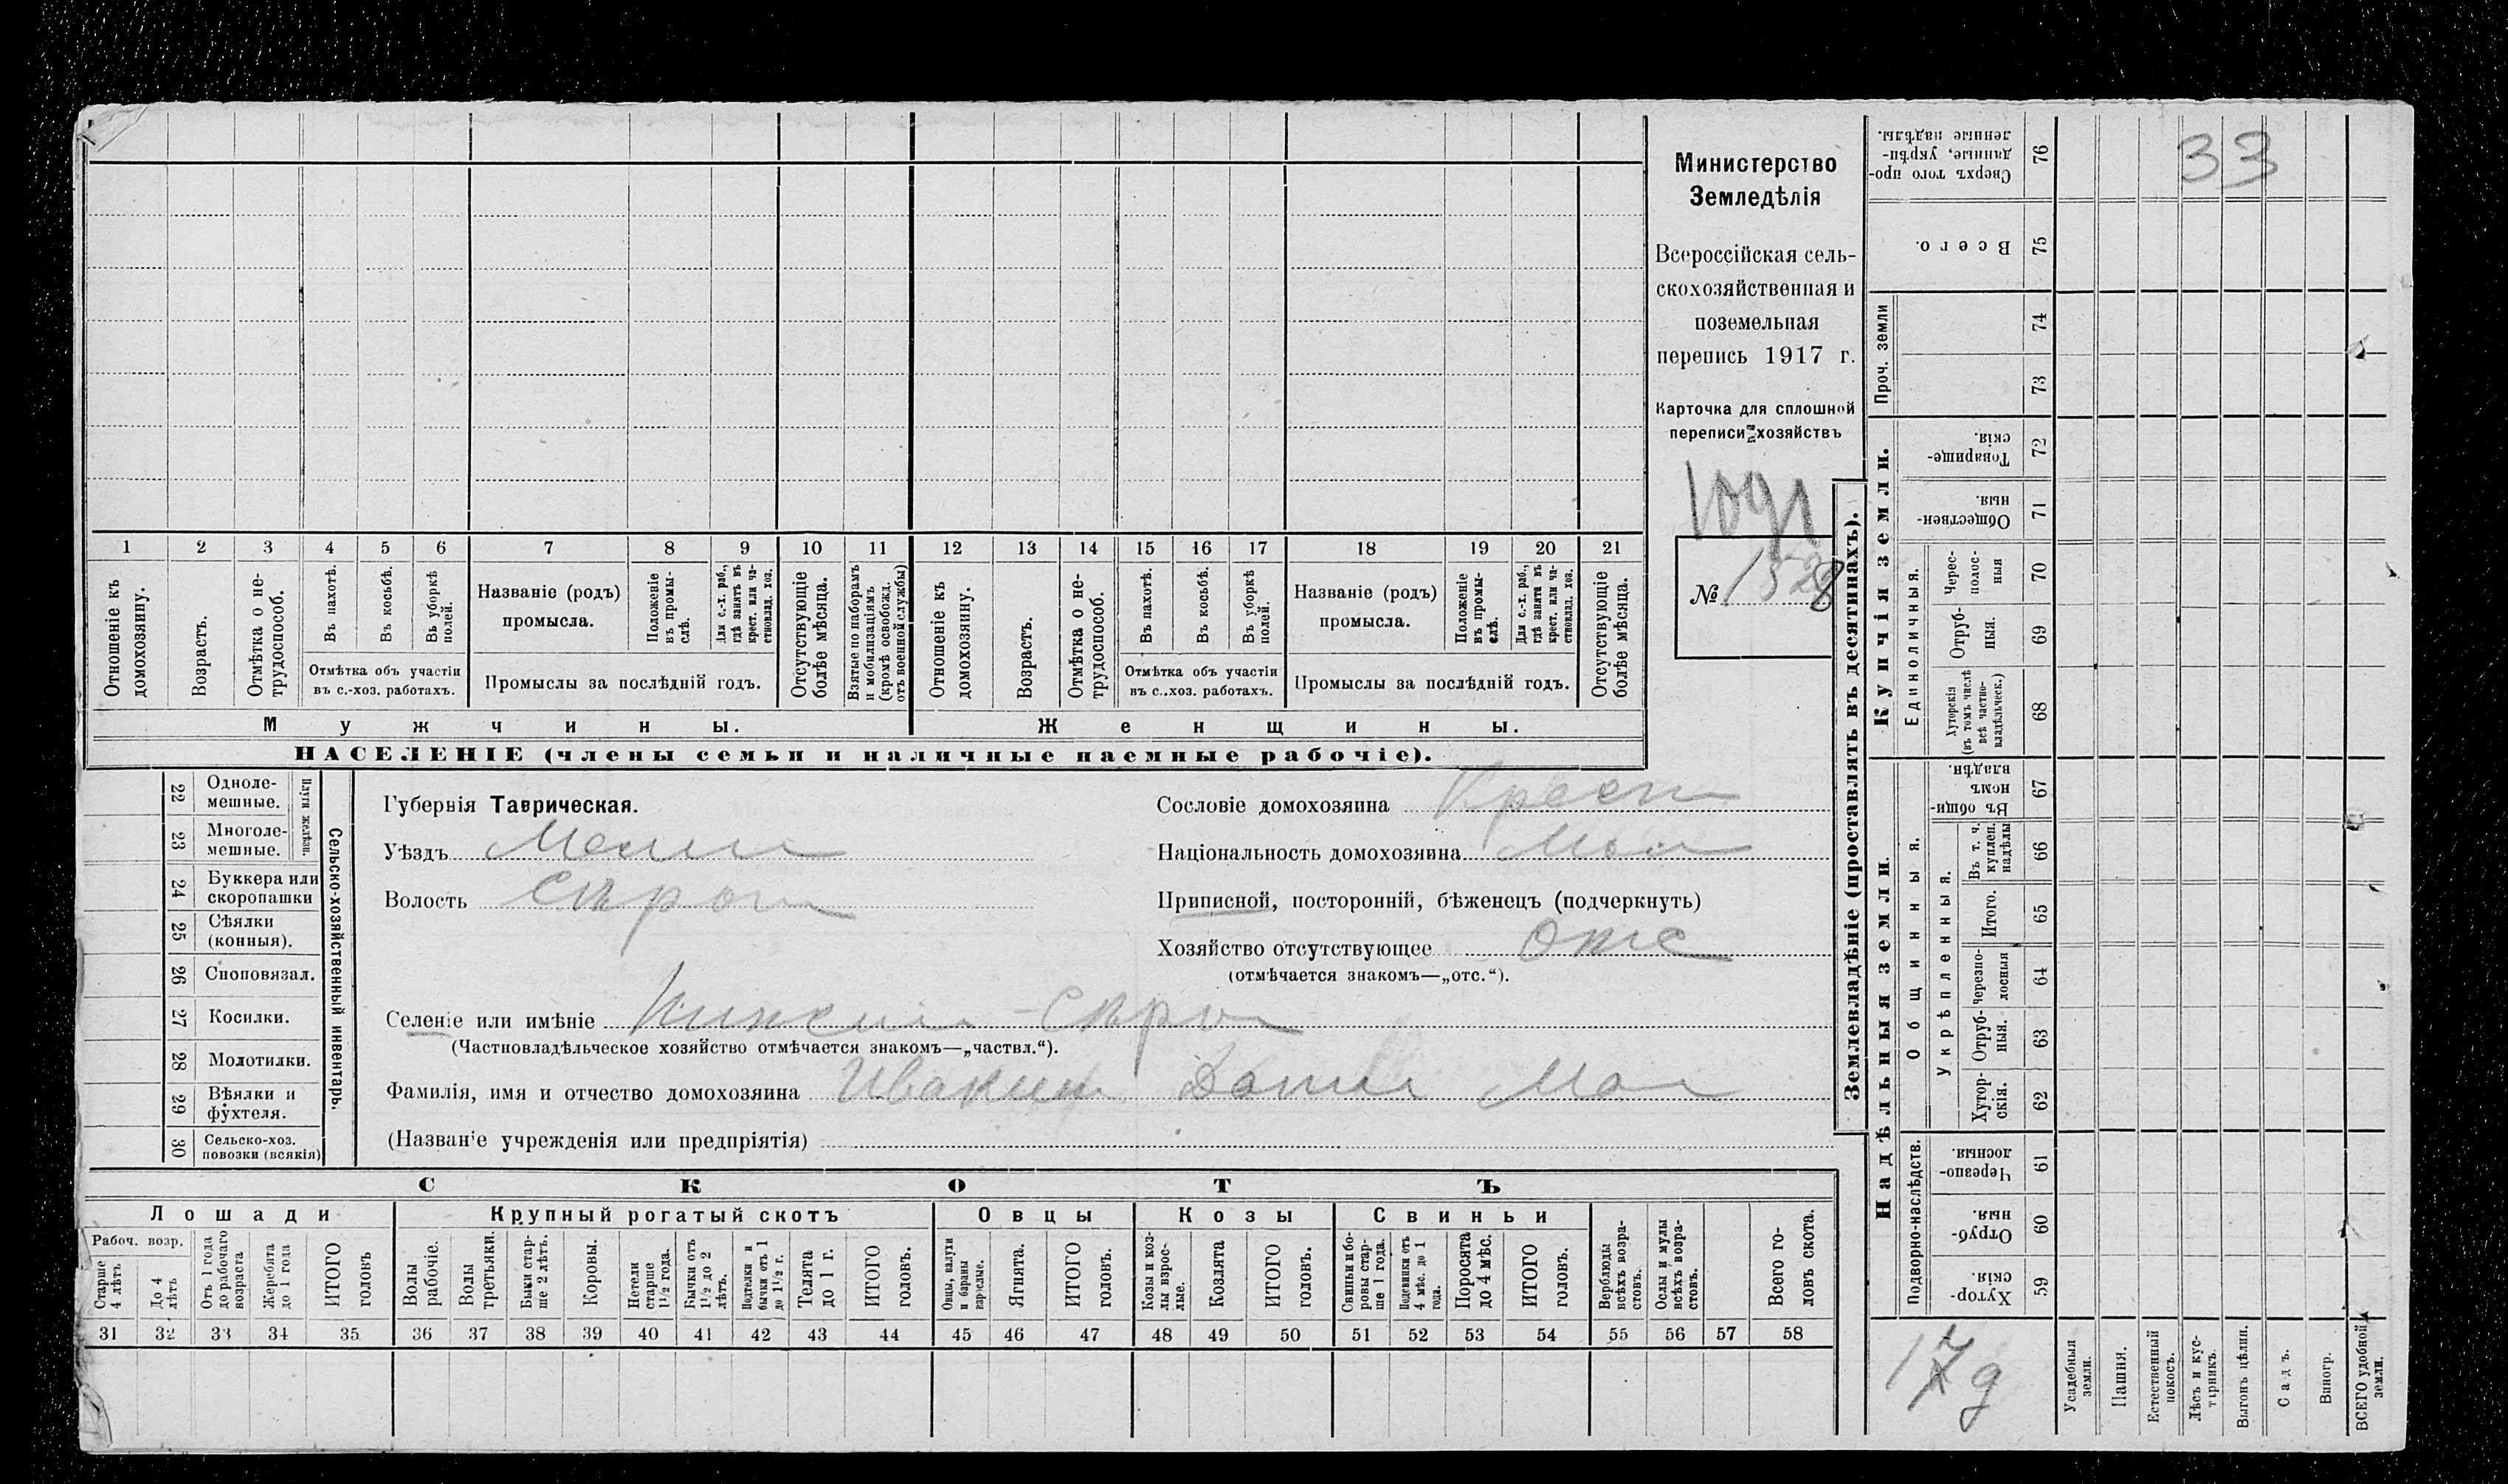 Министерство
Земледѣлія
Всероссійская сель-
скохозяйственная и
поземельная
перепись 1917 г.
Карточка для сплошной
переписи хозяйствъ
1091
№ 1528
1 2 3 4 5 6 7 8 9 10 11 12 13 14 15 16 17 18 19 20 21
Отношеніе къ домохозяину.
Возрастъ.
Отмѣтка о не-трудоспособ.
Въ пахотѣ.
Въ косьбѣ.
Въ уборкѣ полей.
Отмѣтка объ участіи
въ с.-хоз. работахъ.
Названіе (родъ)
промысла.
Положеніе въ промы-слѣ.
Для с.-х. раб., гдѣ занятъ въ крест. или ча-стновлад. хоз.
Промыслы за послѣдній годъ.
Отсутствующіе болѣе мѣсяца.
Взятые по наборамъ и мобилизаціямъ (кромѣ освобожд. отъ военной службы)
Отношеніе къ домохозяину.
Возрастъ.
Отмѣтка о не-трудоспособ.
Въ пахотѣ.
Въ косьбѣ.
Въ уборкѣ полей.
Отмѣтка объ участіи
въ с.-хоз. работахъ.
Названіе (родъ)
промысла.
Положеніе въ промы-слѣ.
Для с.-х. раб., гдѣ заняти въ крест. или ча-стновлад. хоз.
Промыслы за послѣдній годъ.
Отсутствующіе болѣе мѣсяца.
Мужчины.
Женщины.
НАСЕЛЕНІЕ (члены семьи и наличные наемные рабочіе).
22 Одноле-мешные.
23 Многоле-мешные.
Плуги желѣзн.
24 Буккера или скоропашки
25 Сѣялки (конныя).
26 Сноповязал.
27 Косилки.
28 Молотилки.
29 Вѣялки и фухтеля.
30 Сельско-хоз. повозки (всякія)
Сельско-хозяйственный инвентарь.
Губернія Таврическая.
Уѣздъ Мелит
Волость Сѣрог
Сословіе домохозяина Крест
Національность домохозяина Мал
Приписной, посторонній, бѣженецъ (подчеркнуть)
Хозяйство отсутствующее Отс
(отмѣчается знакомъ—„отс.“).
Селеніе или имѣніе Нижнiя Сѣрог
(Частновладѣльческое хозяйство отмѣчается знакомъ—„частвл.“).
Фамилія, имя и отчество домохозяина Ивакин Данил Ма
(Названіе учрежденія или предпріятія)
СКОТЪ
Лошади
Крупный рогатый скотъ
Овцы
Козы
Свиньи
Рабоч. возр.
Старше 4 лѣтъ
До 4 лѣтъ
Отъ 1 года до рабочаго возраста
Жеребята до 1 года
ИТОГО головъ
Волы рабочіе.
Волы третьяки.
Быки стар-ше 2 лѣтъ.
Коровы.
Нетели старше 1½ года.
Бычки отъ 1½ до 2 лѣтъ.
Подтелки и бычки отъ 1 до 1½ г.
Телята до 1 г.
ИТОГО головъ.
Овцы, валухи и бараны взрослые.
Ягнята.
ИТОГО головъ.
Козы и коз-лы взрос-лые.
Козлята
ИТОГО головъ.
Свиньи и бо-ровы стар-ше 1 года.
Подсвинки отъ 4 мѣс. до 1 года.
Поросята до 4 мѣс.
ИТОГО головъ.
Верблюды всѣхъ возра-стовъ.
Ослы и мулы всѣхъ возра-стовъ.
Всего го-ловъ скота.
31 32 33 34 35 36 37 38 39 40 41 42 43 44 45 46 47 48 49 50 51 52 53 54 55 56 57 58
Землевладѣніе (проставлять въ десятинахъ).
Купчія земли.
Надѣльныя земли.
Сверхъ того про-данные, укрѣп-ленные надѣлы. 76
33
Всего. 75
Проч. земли
74
73
Товарище-скія. 72
Обществен-ныя. 71
Единоличныя.
Черес-полос-ныя 70
Отруб-ныя. 69
Хуторскія (въ томъ числѣ всѣ частно-владѣльческ.) 68
Общинныя.
Въ общи-номъ владѣн. 67
Укрѣпленныя.
Въ т. ч. куплен. надѣлы 66
Итого. 65
Черезпо-лосныя 64
Отруб-ныя. 63
Хутор-скія. 62
Подворно-наслѣдств.
Черезпо-лосныя. 61
Отруб-ныя. 60
Хутор-скія. 59
17 д
Усадебныя земли.
Пашня.
Естественный покосъ.
Лѣсъ и кус-тарникъ.
Выгонъ цѣлин.
Садъ.
Виногр.
ВСЕГО удобной земли.